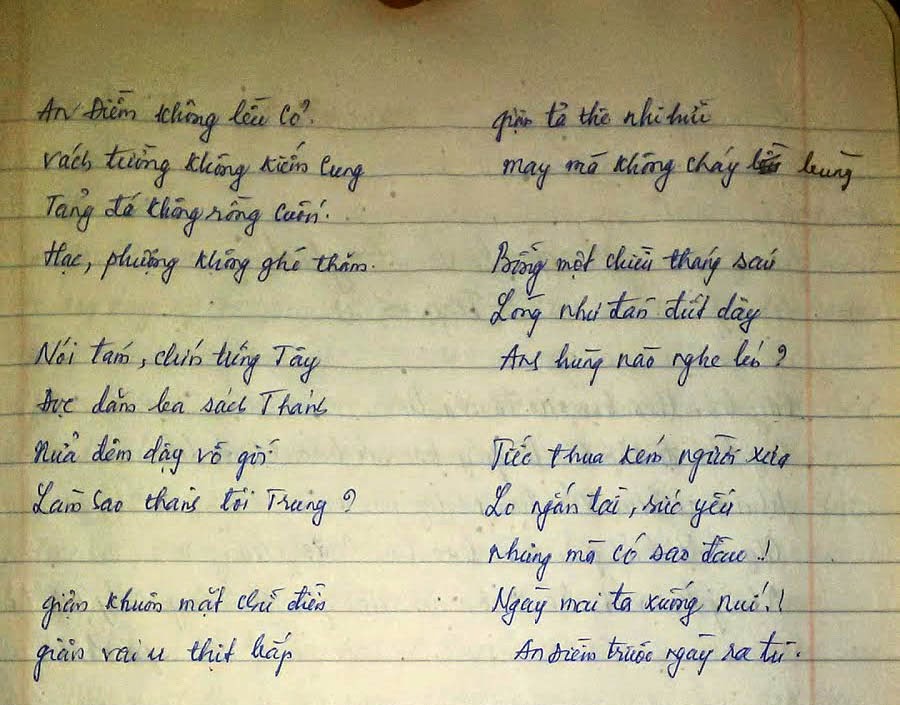 An Điềm không lều cỏ.
vách tường không kiếm cung
Tảng đá không rồng cuốn.
Hạc, phượng không ghé thăm.
Nói tám, chín tiếng Tây
Đọc dăm ba sách Thánh
Nửa đêm dậy vỗ gối
Làm sao thành tôi Trung?
giận khuôn mặt chữ điền
giận vai u thịt bắp
giận tả thê nhi
may mà không cháy bùng
Bỗng một chiều tháng sáu
Lòng như đàn đứt dây
Anh hùng nào nghe lén?
Tiếc thua kém người xưa
Lo ngắn tài, sức yếu
nhưng mà có sao đâu!
Ngày mai ta xuống núi.!
An Điềm trước ngày ra tù.